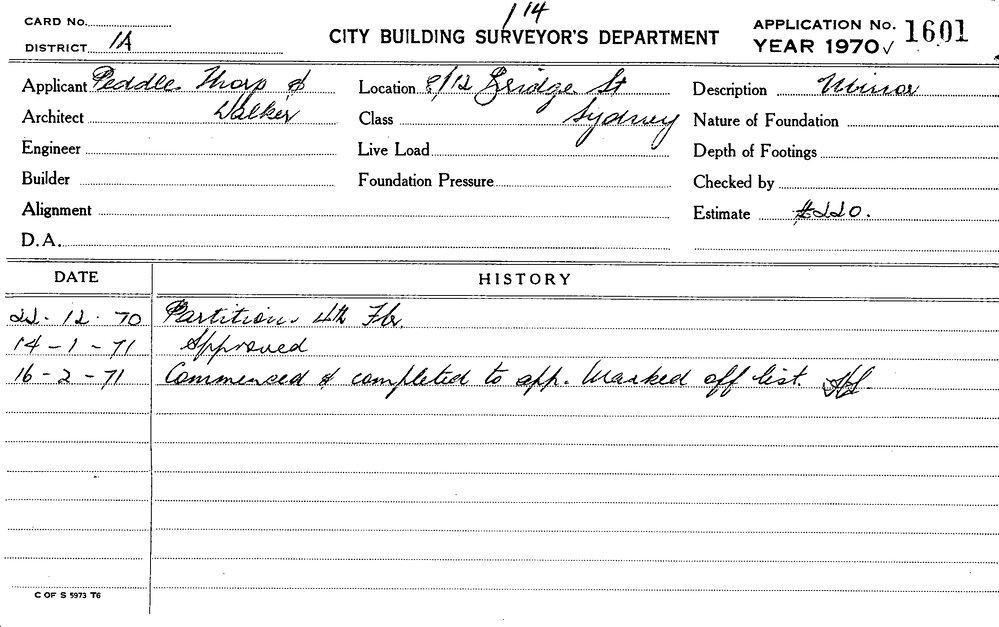 114
CARD No.
DISTRICT 1A
CITY BUILDING SURVEYOR'S DEPARTMENT
APPLICATION No. 1601
YEAR 1970 ✓
Applicant Peddle Thorp &
Walker
Location 8/12 Bridge St
Sydney
Description Minor
Architect
Class
Nature of Foundation
Engineer
Live Load
Depth of Footings
Builder
Foundation Pressure
Checked by
Alignment
Estimate $220.
D.A.
DATE HISTORY
22-12-70 Partition 4th Flr.
14-1-71 Approved
16-2-71 Commenced & completed to app. Marked off list.
C OF S 5973 T6